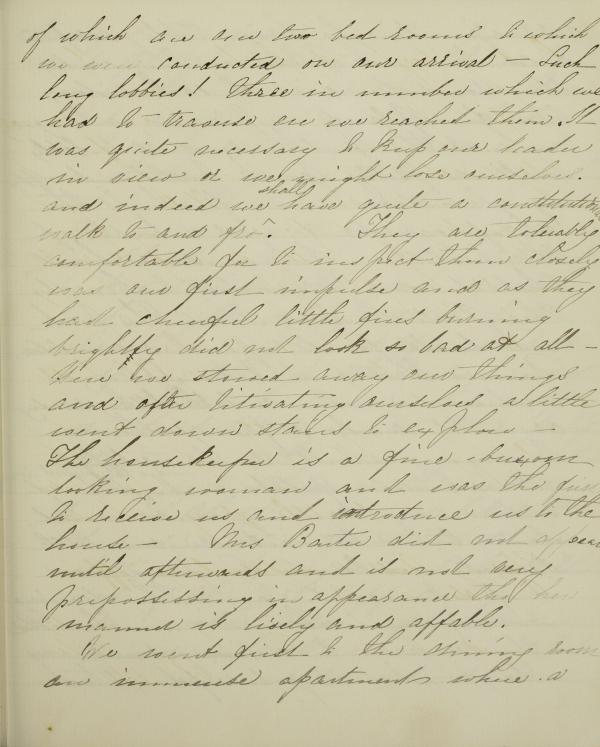 of which are our two bed rooms to which
we were conducted on our arrival – Such
long lobbies! Three in number which we
had to traverse ere we reached them. It
was quite necessary to keep our leader
in view or we might lose ourselves.
and indeed we shall have quite a constitutional
walk to and fro. They are tolerably
comfortable for to inspect them closely
was our first impulse and as they
had cheerful little fires burning
brightly did not look so bad at all –
Here we stowed away our things
and after titivating ourselves a little
went down stairs to explore –
The housekeeper is a fine buxom
looking woman and was the first
to receive us and introduce us to the
house – Mrs Baxter did not appear
until afterwards and is not very
prepossessing in appearance tho her
manner is lively and affable.
We went first to the dining room
an immense apartment where a